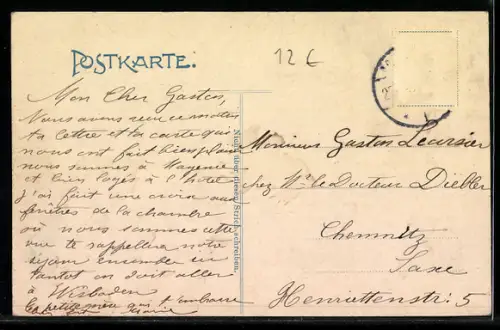 POSTKARTE.
12 €
Mon Cher Gaston,
Nous avons reçu ce matin
ta lettre et la carte qui
nous ont fait bien plaisir
nous sommes à Mayence
et bien logés à l'hôtel
j'ai fait une croix aux
fenêtres de la chambre
où nous sommes cette
vue te rappellera notre
séjour ensemble ici
tantôt on doit aller
à Wisbaden
ta petite mère qui t'embrasse
Marie
Nicht über diesen Strich schreiben.
Monsieur Gaston
chez Mr le Docteur Diebler
Chemnitz
Saxe
Henriettenstr: 5